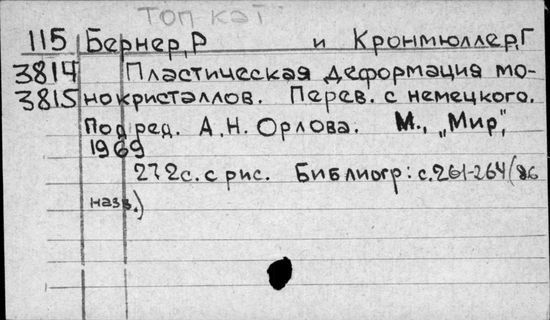 Топ кат
115 Бернер, Р и Кронмюллер, Г
3814 Пластическая деформация мо-
3815 нокристаллов. Перев. с немецкого.
Под ред. А.Н. Орлова. М., „Мир",
1969
272с. с рис. Библиогр: с.261-264 (86
назв.)